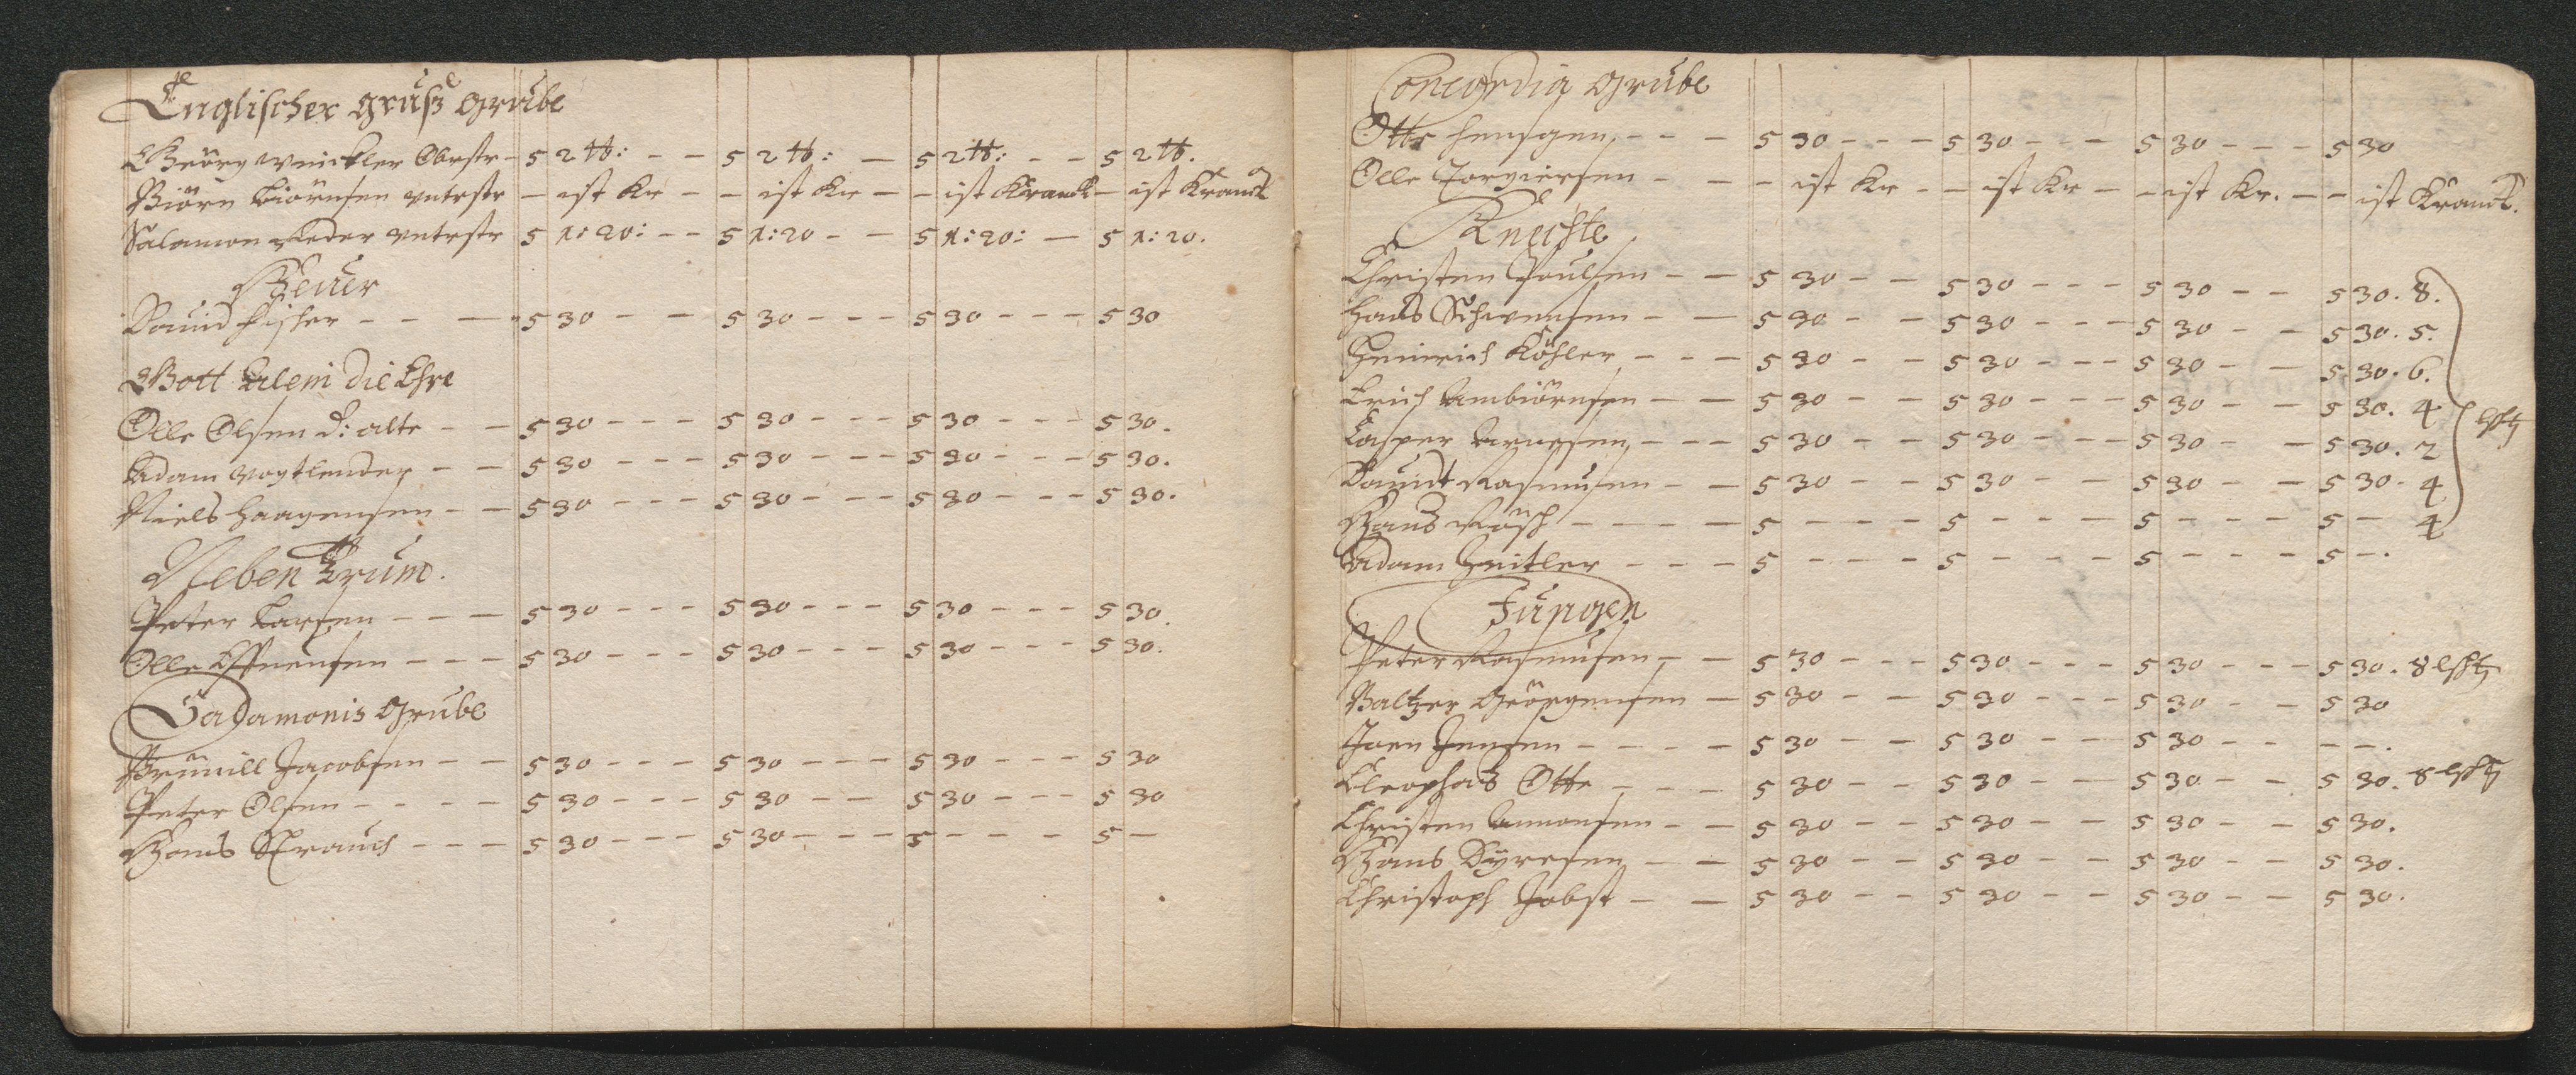 Englischer gruß grube
Geörg Winckler Obrstr - 5 2 tb: - - 5 2 tb: - 5 2 tb: - - 5 2 tb.
Biörn Biörnsen vntrstr - ist Kr - - ist Kr - - ist Kranck - ist Kranck
Salamon Reder vntrstr 5 1: 20: - - 5 1: 20 - - 5 1: 20: - 5 1: 20.
Heuer
Dauid Fisher - - - 5 30 - - 5 30 - - - 5 30 - - - 5 30
Gott Alein die Ehre
Olle Olsen d: alte - - 5 30 - - - 5 30 - - - 5 30 - - - 5 30.
Adam Vogtlender - - 5 30 - - - 5 30 - - - 5 30 - - - 5 30.
Niels Haagensen - - 5 30 - - - 5 30 - - - 5 30 - - - 5 30.
Neben Trum.
Peter Larsen - - - 5 30 - - - 5 30 - - - 5 30 - - - 5 30.
Olle - - - 5 30 - - - 5 30 - - - 5 30 - - - 5 30.
Sadamonis Grube
Brunill Jacobsen - - 5 30 - - - 5 30 - - - 5 30 - - - 5 30
Peter Olsen - - - - 5 30 - - - 5 30 - - 5 30 - - - 5 30
Hans Strauch - - - 5 30 - - - 5 30 - - - 5 - - - - 5 -
Concordia Grube
Otte Hensgen - - - 5 30 - - - 5 30 - - 5 30 - - - 5 30
Olle Torgiersen - - - ist Kr - - ist Kr - - ist Kr. - - ist Kranck.
Knechte
Christen Poulsen - - 5 30 - - 5 30 - - - 5 30 - - 5 30. 8.
Hans Schwensen - - 5 30 - - 5 30 - - - 5 30 - - 5 30. 5.
Heinrich Köhler - - - 5 30 - - 5 30 - - - 5 30 - - 5 30. 6.
Erich Ambiörnsen - - 5 30 - - 5 30 - - - 5 30 - - 5 30. 4
Casper Arnesen - - - 5 30 - - 5 30 - - - 5 30 - - 5 30. 2
Dauidt Rasmusen - - 5 30 - - 5 30 - - 5 30 - - 5 30. 4
Hans Rösch - - - - 5 - - - 5 - - - 5 - - - 5 - 4
Adam Heitler - - - 5 - - - - 5 - - - - 5 - - - - 5 - .
Jungen
Peter Rasmusen - - 5 30 - - - 5 30 - - - 5 30 - - - 5 30. 8
Baltzer Geörgensen - 5 30 - - 5 30 - - - 5 30 - - 5 30
Joen Jensen - - - - 5 30 - - 5 30 - - 5 30 - - - - .
Cleophas Otte - - - 5 30 - - 5 30 - - 5 30 - - 5 30. 8
Christen Amonsen - - 5 30 - - 5 30 - - 5 30 - - 5 30.
Hans Dyresen - - 5 30 - - 5 30 - - 5 30 - - 5 30.
Christoph Jobst - - 5 30 - - 5 30 - - 5 30 - - 5 30.